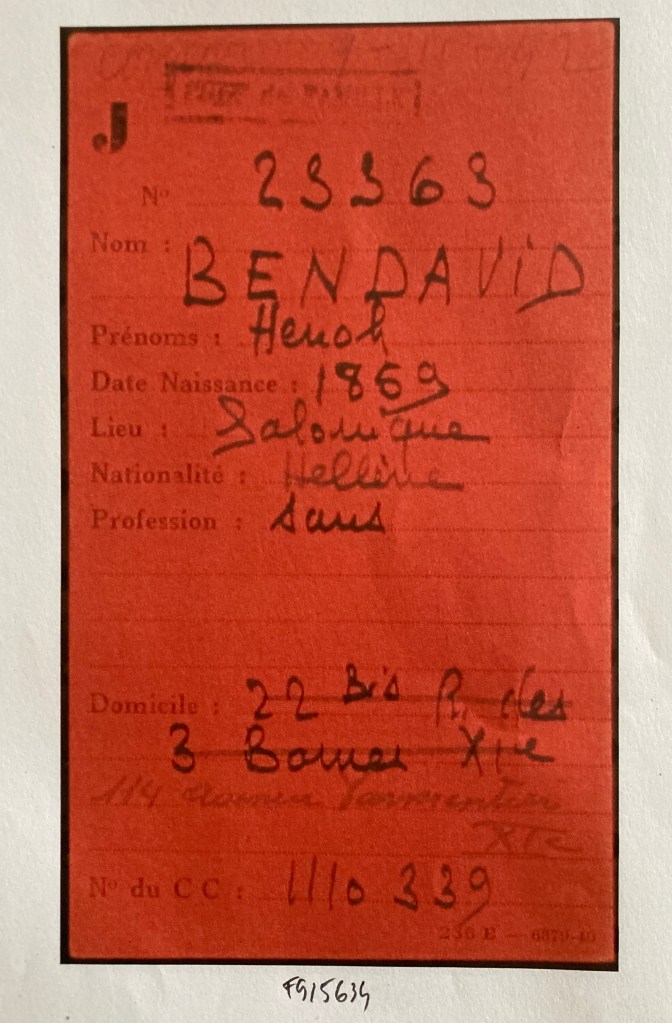 9-11-42
J
No 23363
Nom :
BENDAVID
Prénoms : Henoh
Date Naissance : 1869
Lieu : Salonique
Nationalité : Hellène
Profession : sans
Domicile : 22 Bis R. des
3 Bornes XIe
114 Avenue Parmentier
XIe
No du C C : 1110 339
236 E — 6879-40
FG15639